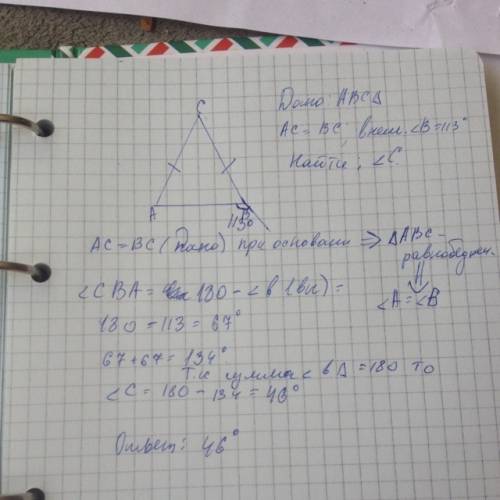 C
Дано: ABCΔ
AC = BC; внеш. ∠B = 113°
Найти: ∠C.
A
B
113°
AC = BC (Дано) при основани ⇒ ΔABC –
равнобедрен.
⇓
∠CBA = 180 – ∠B (вн) =
∠A = ∠B
180 – 113 = 67°
67 + 67 = 134°
т.к сумма ∠ в Δ = 180 то
∠C = 180 – 134 = 46°
Ответ: 46°